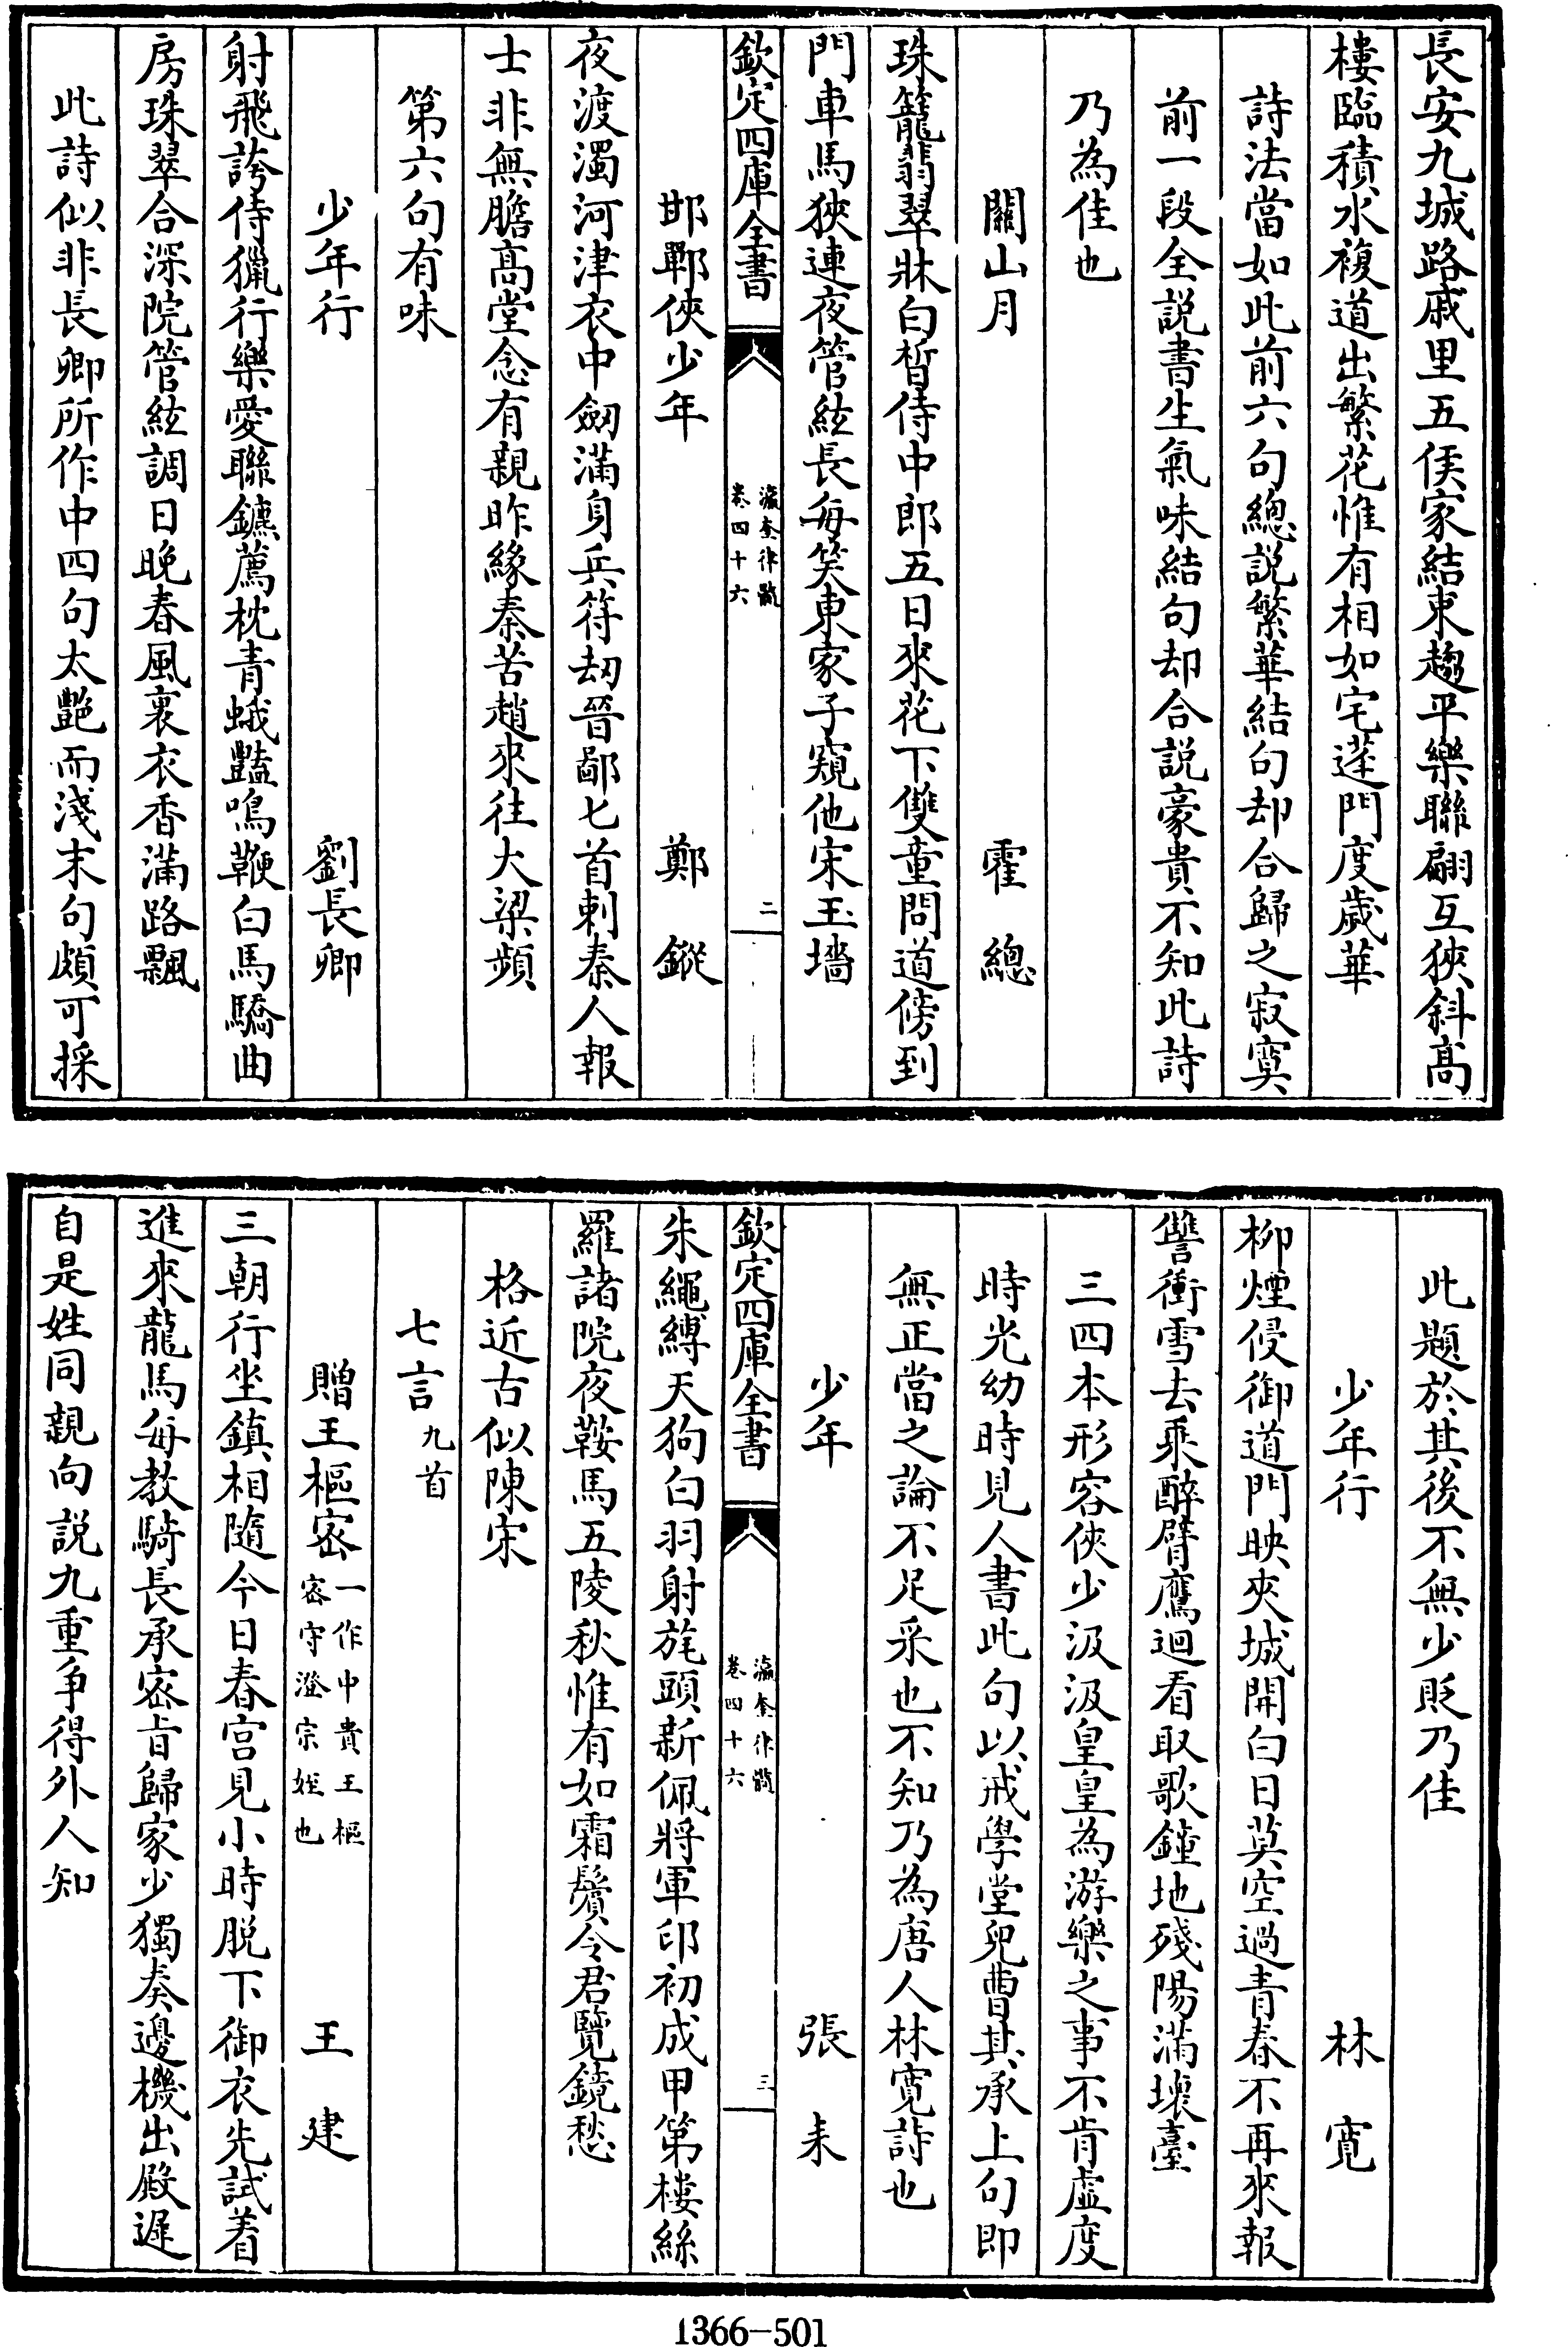 長安九城路戚里五侯家結束趨平樂聯翩互狹斜高
樓臨積水複道出繁花惟有相如宅蓬門度歲華
詩法當如此前六句總説繁華結句却合歸之寂寞
前一段全説書生氣味結句却合説豪貴不知此詩
乃為佳也
關山月　霍　總
珠籠翡翠牀白晳侍中郎五日來花下雙童問道傍到
門車馬狹連夜管絃長每笑東家子窺他宋玉墻
欽定四庫全書　瀛奎律髓　卷四十六　二
邯鄲俠少年　鄭　鏦
夜渡濁河津衣中劒滿身兵符刧晉鄙匕首刺秦人報
士非無膽高堂念有親昨緣秦苦趙來往大梁頻
第六句有味
少年行　劉長卿
射飛誇侍獵行樂愛聯鑣薦枕青蛾豔鳴鞭白馬驕曲
房珠翠合深院管絃調日晚春風裏衣香滿路飄
此詩似非長卿所作中四句太艷而淺末句頗可採
此題於其後不無少貶乃佳
少年行　林　寛
柳煙侵御道門映夾城開白日莫空過青春不再來報
讐衝雪去乘醉臂鷹迴看取歌鐘地殘陽滿壞臺
三四本形容俠少汲汲皇皇為游樂之事不肯虚度
時光幼時見人書此句以戒學堂兒曹其承上句即
無正當之論不足采也不知乃為唐人林寛詩也
少年　張　耒
欽定四庫全書　瀛奎律髓　卷四十六　三
朱繩縛天狗白羽射旄頭新佩將軍印初成甲第樓絲
羅諸院夜鞍馬五陵秋惟有如霜鬢令君覽鏡愁
格近古似陳宋
七言九首
贈王樞密一作中貴王樞密守澄宗姪也　王　建
三朝行坐鎮相隨今日春宫見小時脱下御衣先試着
進來龍馬每教騎長承密旨歸家少獨奏邊機出殿遲
自是姓同親向説九重争得外人知
1366-501